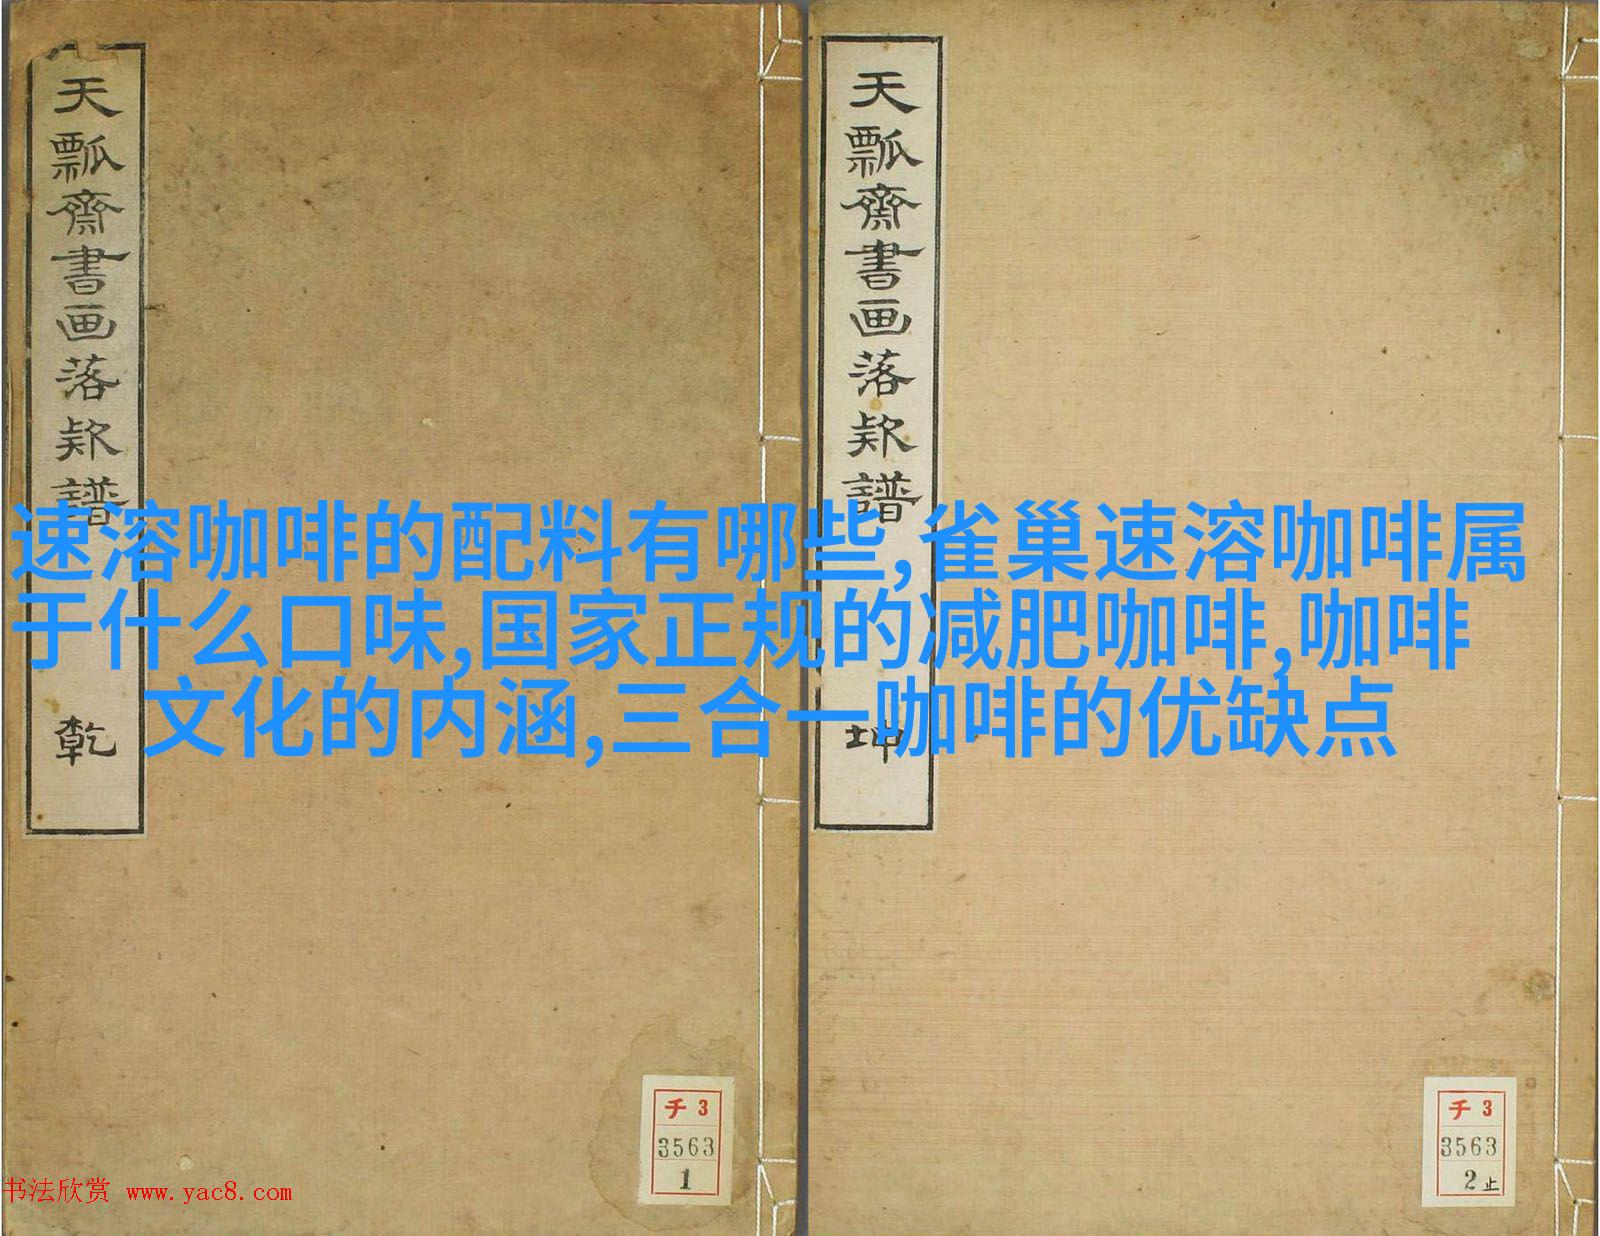 天瓢齋書画落款譜
乾
天瓢齋書画落款譜
坤
速溶咖啡的配料有哪些,雀巢速溶咖啡属
于什么口味,国家正规的减肥咖啡,咖啡
文化的内涵,三合一咖啡的优缺点
チ 3
3563
1
チ 3
3563
2止
书法欣赏 www.yac8.com